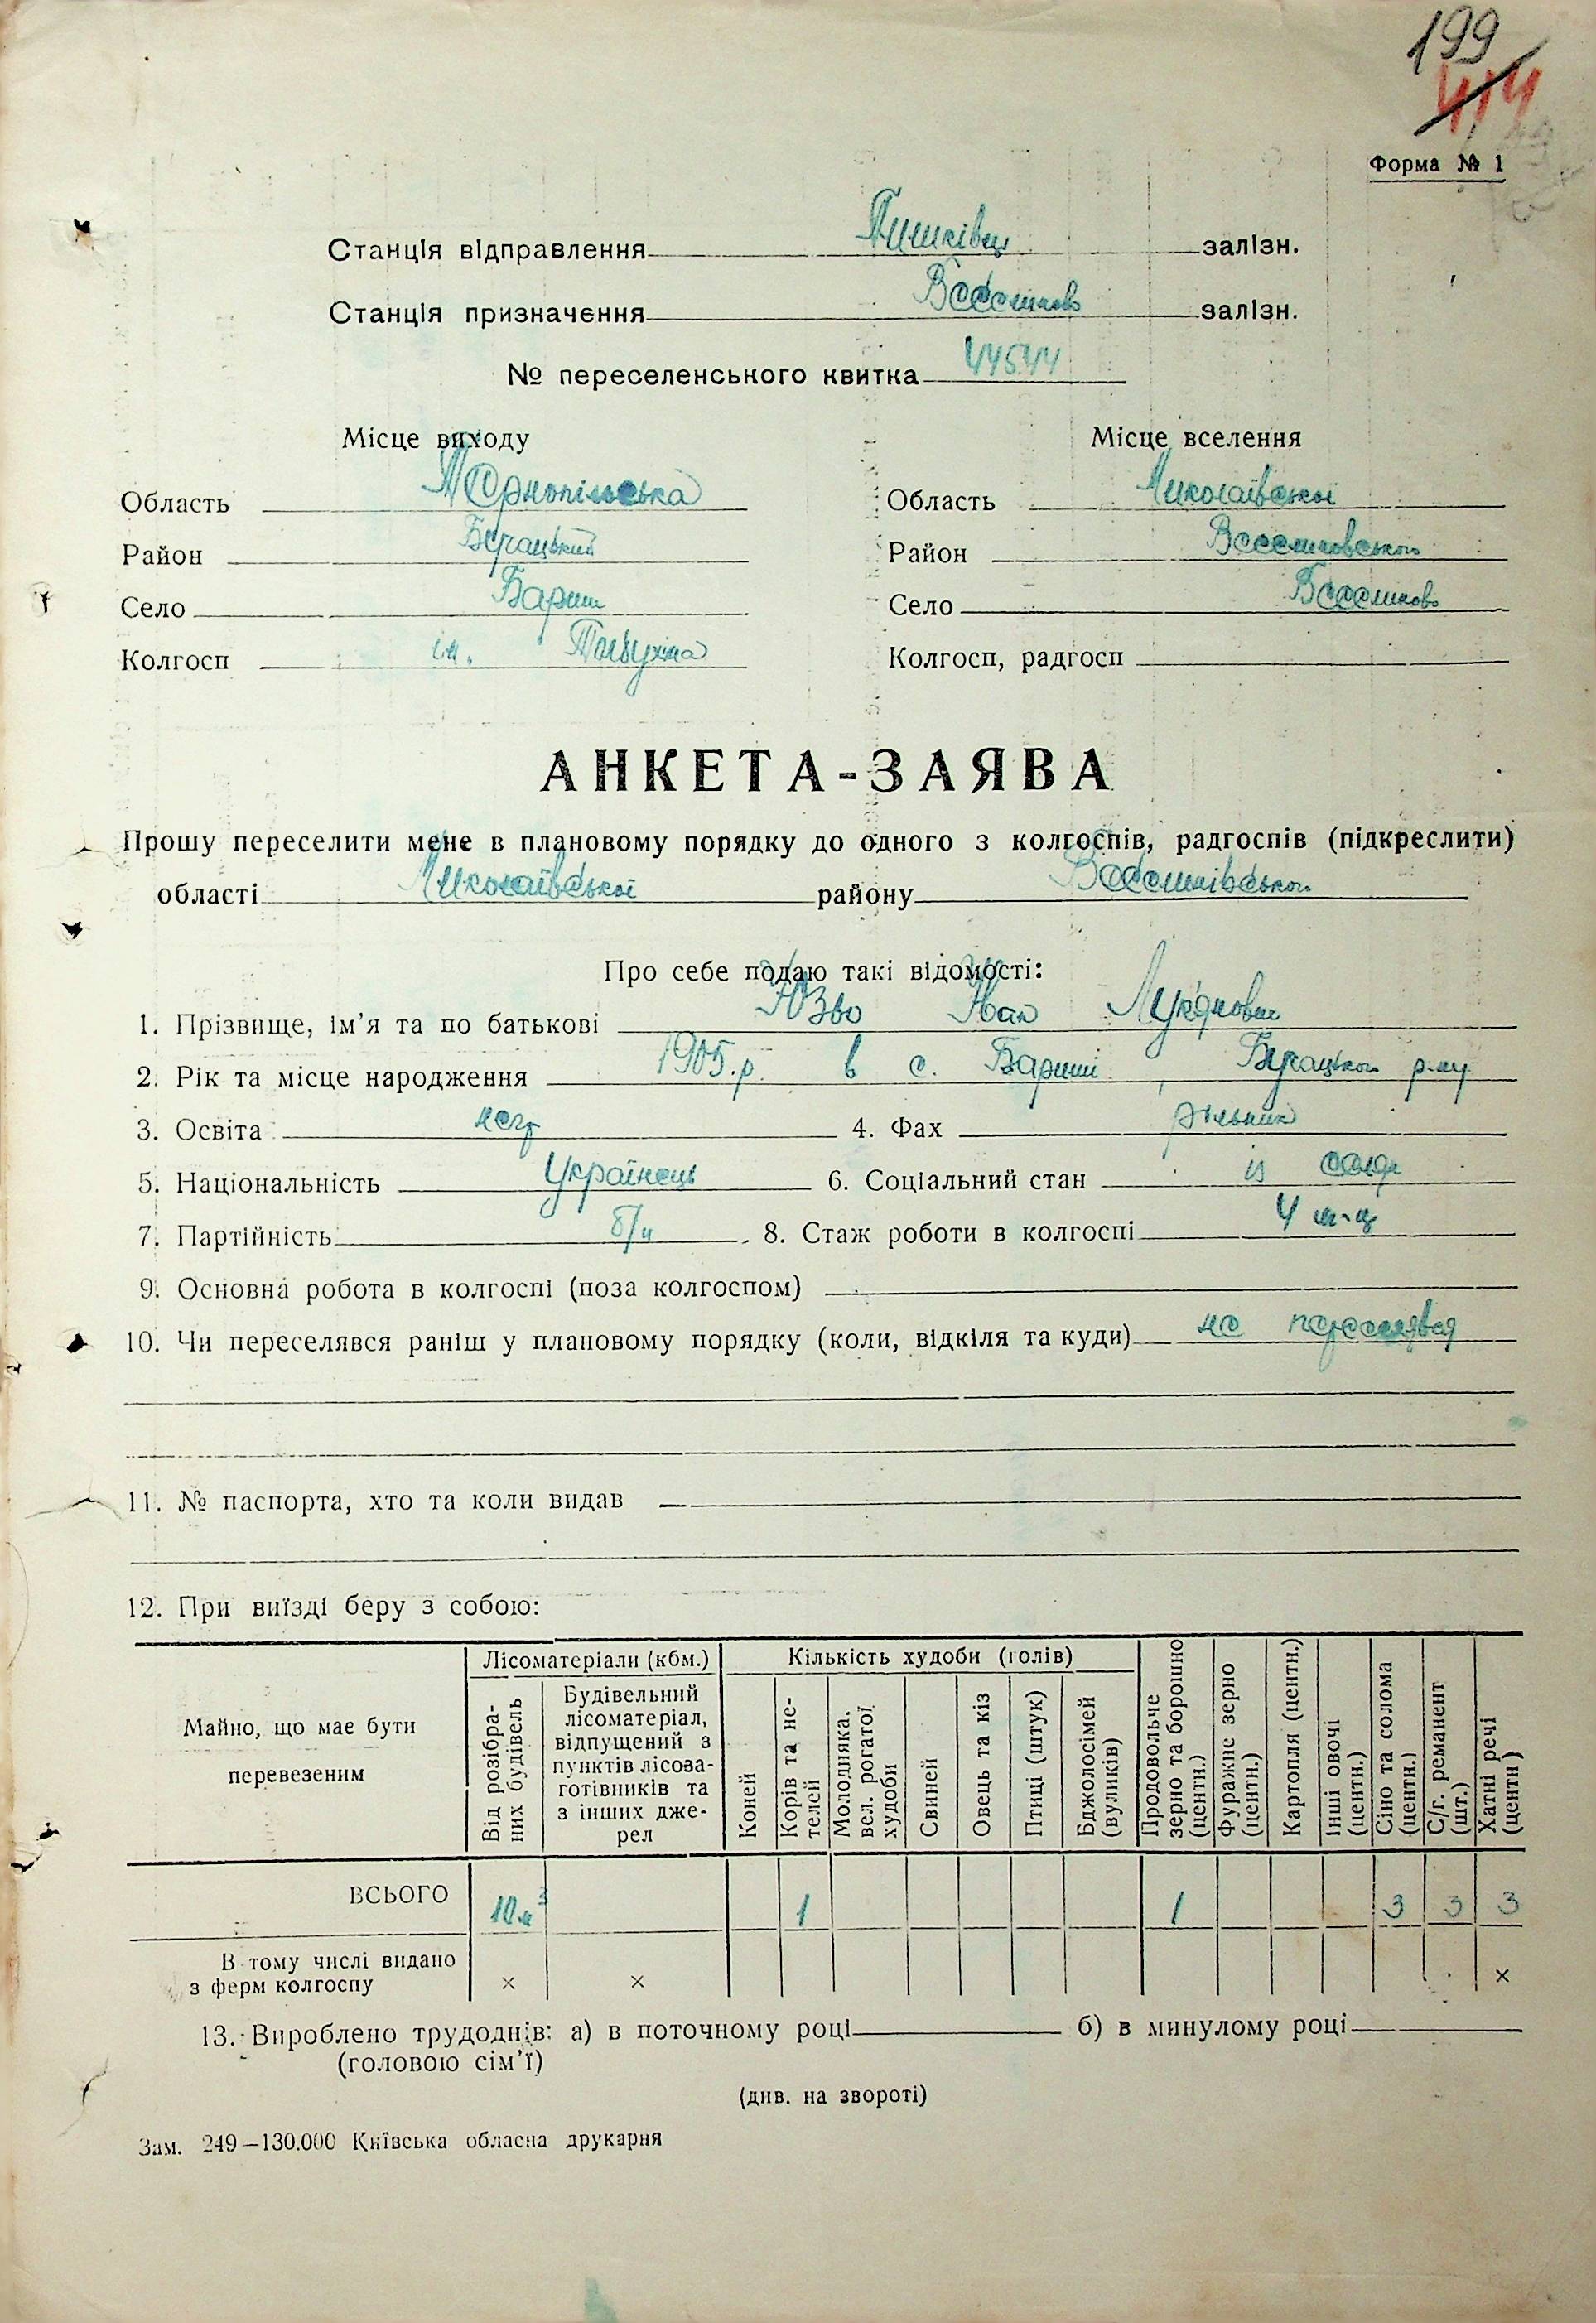 199
414
Форма № 1
Станція відправлення Пишківці залізн.
Станція призначення Веселиново залізн.
№ переселенського квитка 44544
Місце виходу Місце вселення
Область Тернопільська Область Миколаївської
Район Бучацький Район Веселиновського
Село Бариш Село Веселиново
Колгосп ім. Толбухіна Колгосп, радгосп
АНКЕТА-ЗАЯВА
Прошу переселити мене в плановому порядку до одного з колгоспів, радгоспів (підкреслити)
області Миколаївської району Веселинівського
Про себе подаю такі відомості:
1. Прізвище, ім’я та по батькові Юзво Іван Лук'янович
2. Рік та місце народження 1905 р. в с. Бариші Бучацького р-ну
3. Освіта негр 4. Фах рільник
5. Національність Українець 6. Соціальний стан із селян
7. Партійність б/п 8. Стаж роботи в колгоспі 4 м-ц
9. Основна робота в колгоспі (поза колгоспом)
10. Чи переселявся раніш у плановому порядку (коли, відкіля та куди) не переселявся
11. № паспорта, хто та коли видав
12. При виїзді беру з собою:
Майно, що має бути перевезеним
Лісоматеріали (кбм.)
Від розібраних будівель
Будівельний лісоматеріал, відпущений з пунктів лісозаготівників та з інших джерел
Кількість худоби (голів)
Коней
Корів та нетелей
Молодняка. вел. рогатої худоби
Свиней
Овець та кіз
Птиці (штук)
Бджолосімей (вуликів)
Продовольче зерно та борошно (центн.)
Фуражне зерно (центн.)
Картопля (центн.)
Інші овочі (центн.)
Сіно та солома (центн.)
С/г. реманент (шт.)
Хатні речі (центн)
ВСЬОГО 10 м³ 1 1 3 3 3
В тому числі видано з ферм колгоспу × × ×
13. Вироблено трудоднів: а) в поточному році б) в минулому році
(головою сім’ї)
(див. на звороті)
Зам. 249—130.000 Київська обласна друкарня